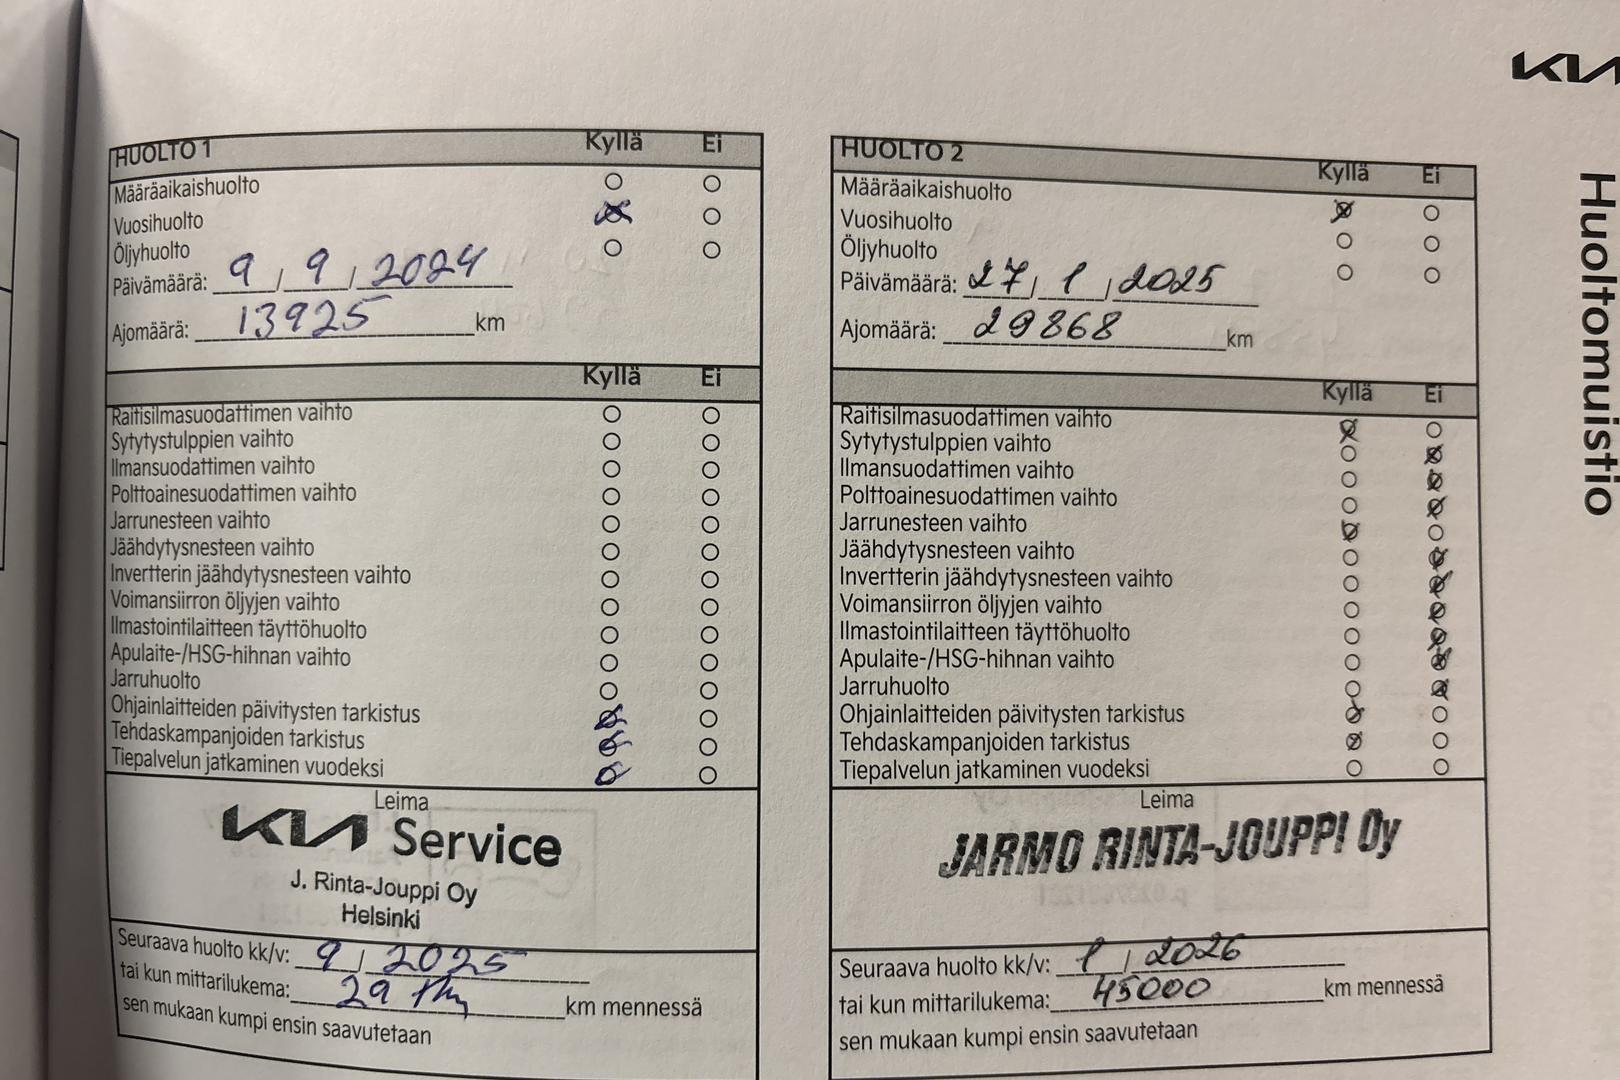 KIA
Huoltomuistio
HUOLTO 1 Kyllä Ei
Määräaikaishuolto
Vuosihuolto
Öljyhuolto
Päivämäärä: 9 / 9 / 2024
Ajomäärä: 13925 km
Kyllä Ei
Raitisilmasuodattimen vaihto
Sytytystulppien vaihto
Ilmansuodattimen vaihto
Polttoainesuodattimen vaihto
Jarrunesteen vaihto
Jäähdytysnesteen vaihto
Invertterin jäähdytysnesteen vaihto
Voimansiirron öljyjen vaihto
Ilmastointilaitteen täyttöhuolto
Apulaite-/HSG-hihnan vaihto
Jarruhuolto
Ohjainlaitteiden päivitysten tarkistus
Tehdaskampanjoiden tarkistus
Tiepalvelun jatkaminen vuodeksi
Leima
KIA Service
J. Rinta-Jouppi Oy
Helsinki
Seuraava huolto kk/v: 9 / 2025
tai kun mittarilukema: 29 km mennessä
sen mukaan kumpi ensin saavutetaan
HUOLTO 2 Kyllä Ei
Määräaikaishuolto
Vuosihuolto
Öljyhuolto
Päivämäärä: 27 / 1 / 2025
Ajomäärä: 29868 km
Kyllä Ei
Raitisilmasuodattimen vaihto
Sytytystulppien vaihto
Ilmansuodattimen vaihto
Polttoainesuodattimen vaihto
Jarrunesteen vaihto
Jäähdytysnesteen vaihto
Invertterin jäähdytysnesteen vaihto
Voimansiirron öljyjen vaihto
Ilmastointilaitteen täyttöhuolto
Apulaite-/HSG-hihnan vaihto
Jarruhuolto
Ohjainlaitteiden päivitysten tarkistus
Tehdaskampanjoiden tarkistus
Tiepalvelun jatkaminen vuodeksi
Leima
JARMO RINTA-JOUPPI Oy
Seuraava huolto kk/v: 1 / 2026
tai kun mittarilukema: 45000 km mennessä
sen mukaan kumpi ensin saavutetaan